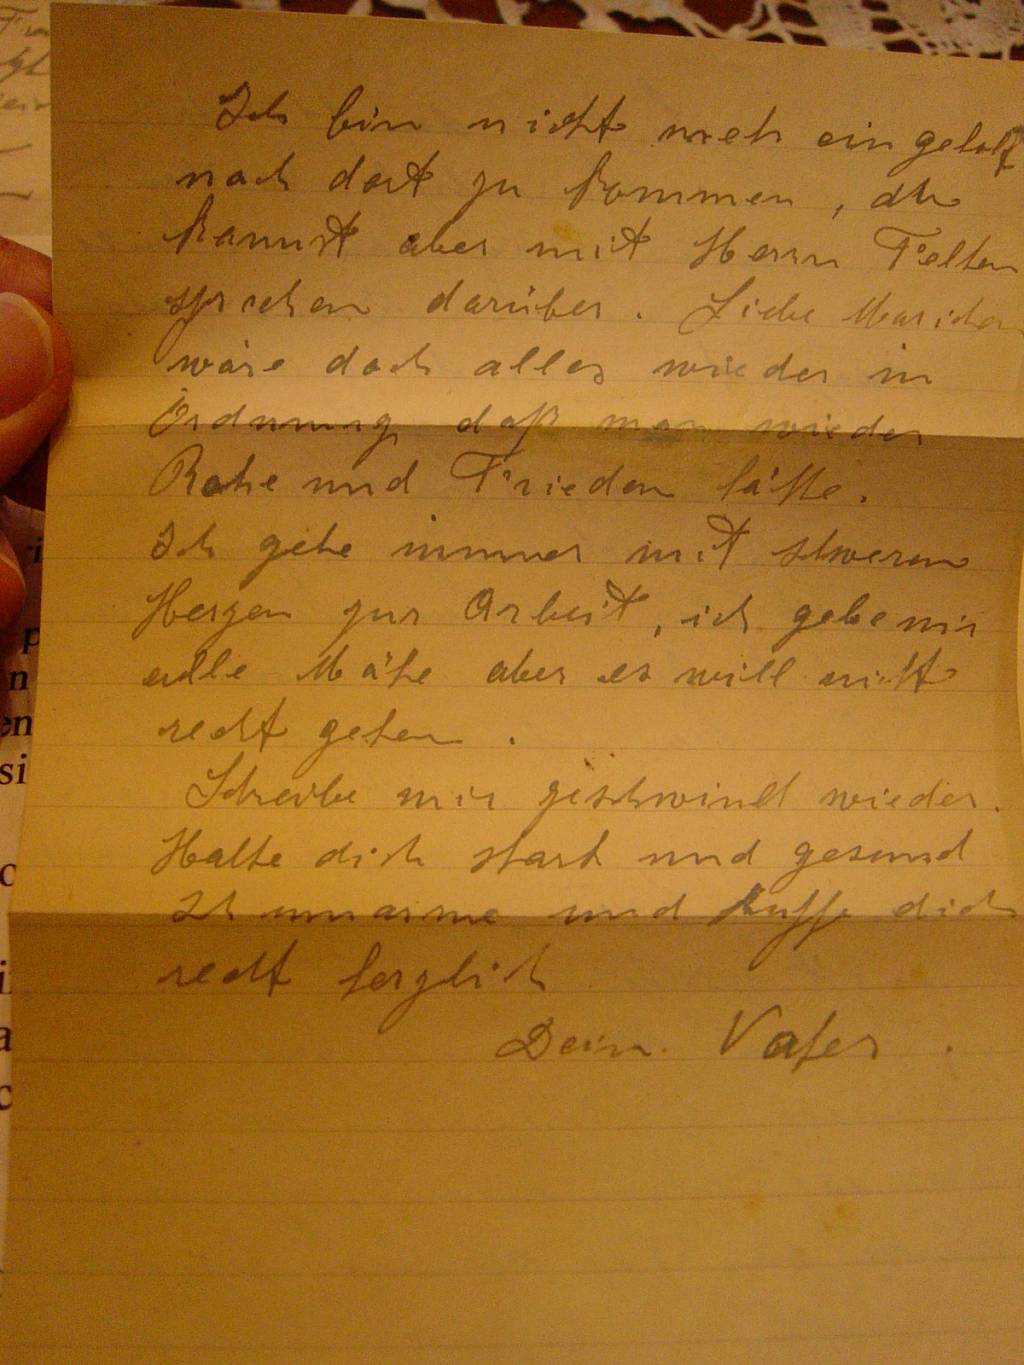 Ich bin nicht meh eingeladt
nach dort zu kommen, du
kannst aber mit Herrn Felten
sprechen darüber. Liebe Mariechen
wäre doch alles wieder in
Ordnung daß man wieder
Ruhe und Frieden hätte.
Ich gehe immer mit schweren
Herzen zur Arbeit, ich gebe mir
alle Mühe aber es will nicht
recht gehen.
Schreibe mir geschwind wieder.
Halte dich stark und gesund
Ich umarme und küsse dich
recht herzlich
Dein. Vater.